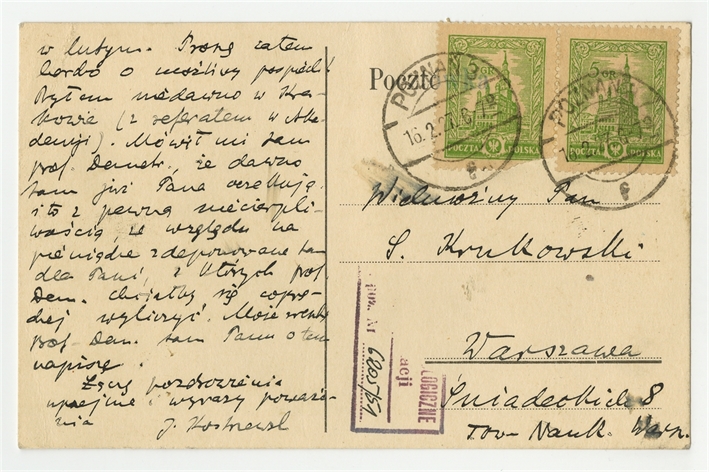 w lutym. Proszę zatem
bardo o możliwy pośpiech!
Byłem niedawno w Kra-
kowie (z referatem w Aka-
demji). Mówił mi tam
prof. Demetr., że dawno
tam już Pana oczekują
i to z pewną niecierpli-
wością, ze względu na
pieniądze zdeponowane tam
dla Pani, z których prof.
Dem. chciałby się coprę-
dzej wyliczyć. Może zresztą
prof. Dem. sam Panu o tem
napisze.
Łączę pozdrowienia
uprzejme i wyrazy poważa-
nia J. Kostrzewski
Poczt
5 GR
POCZTA POLSKA
POCZTA POLSKA
POZNAŃ 3
16.2.27.6
POZNAŃ 3
Wielmożny Pan
S. Krukowski
Warszawa
Śniadeckich 8
Tow. Nauk. Warsz.
LOGICZNE
acji
Nr